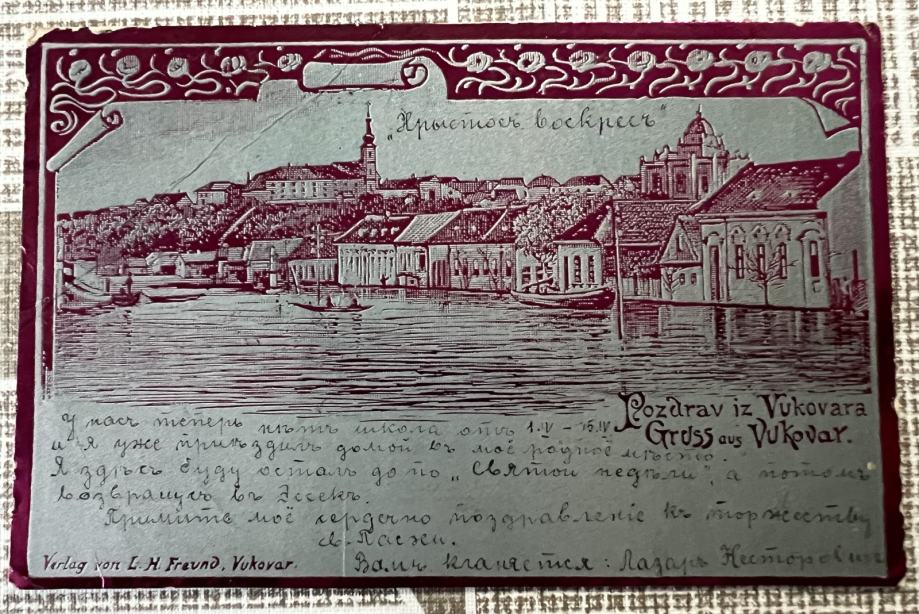 „Хрыстосъ воскресъ“
Pozdrav iz Vukovara
Gruss aus Vukovar.
У насъ теперь нѣтъ школа отъ 1.IV – 15.IV
и я уже пріѣздилъ домой въ моё родное мѣсто.
Я здѣсь буду осталъ до по „Святой недѣли“, а потомъ
возвращусь въ Эсекъ.
Примите моё сердечно поздравленіе къ торжеству
св. Пасхи.
Вамъ кланяется: Лазарь Несторовичъ
Verlag von L. H. Freund, Vukovar.